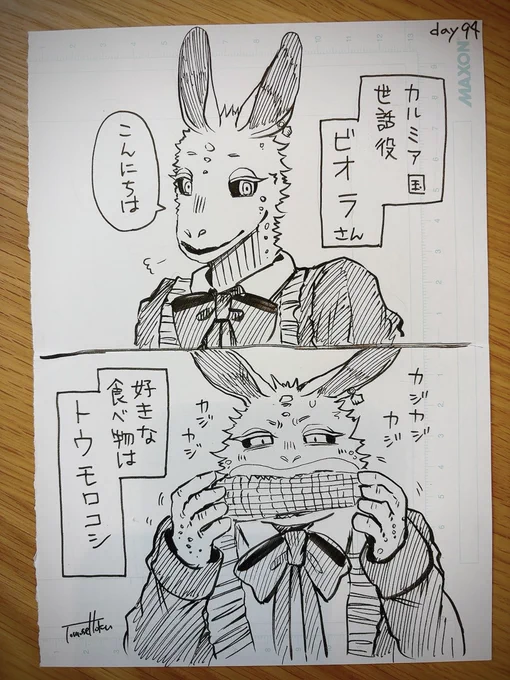 day 94
MAXON
カルミア国
世話役
ビオラさん
こんにちは
カジカジ
カジ
カジ
カジ
好きな
食べ物は
トウモロコシ